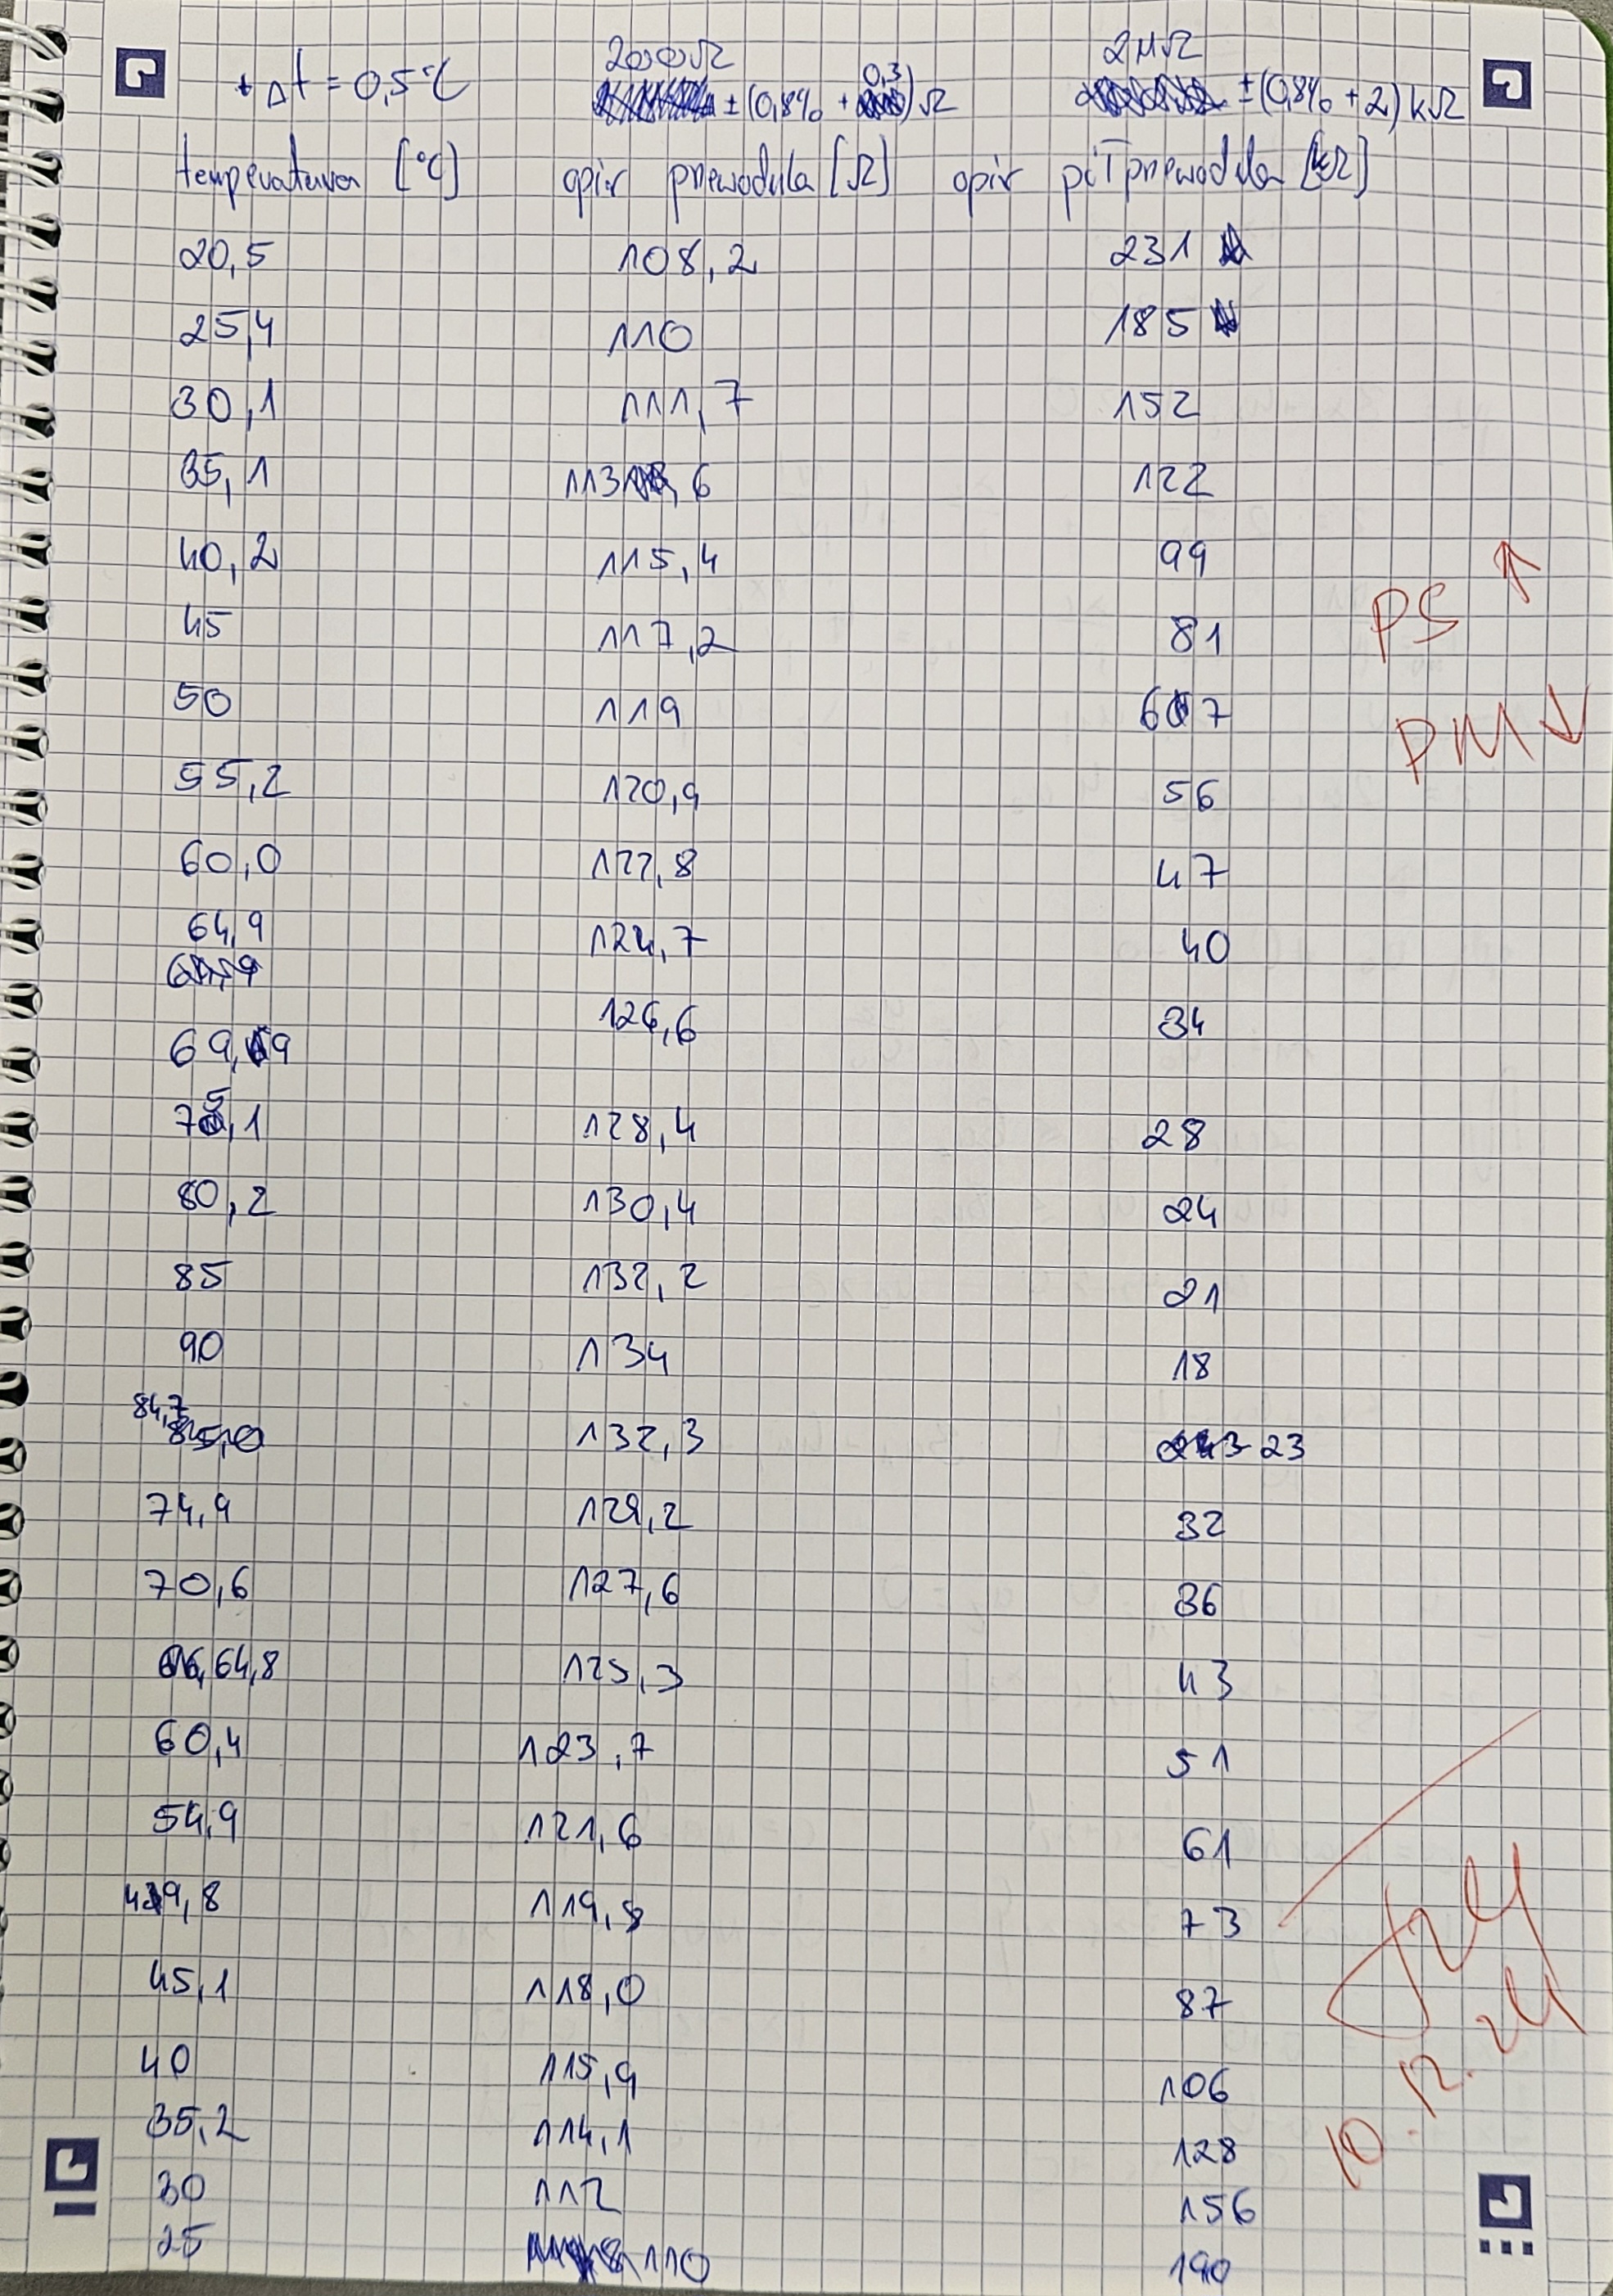 ± Δt = 0,5°C 2000Ω 2MΩ
± (0,8% + 0,3) Ω ± (0,8% + 2) kΩ
temperatura [°C] opór przewodnika [Ω] opór półprzewodnika [kΩ]
20,5 108,2 231
25,4 110 185
30,1 111,7 152
35,1 113,6 122
40,2 115,4 99
45 117,2 81
50 119 67
55,2 120,9 56
60,0 122,8 47
64,9 124,7 40
69,9 126,6 34
75,1 128,4 28
80,2 130,4 24
85 132,2 21
90 134 18
84,7 132,3 23
74,9 129,2 32
70,6 127,6 36
64,8 125,3 43
60,4 123,7 51
54,9 121,6 61
49,8 119,8 73
45,1 118,0 87
40 115,9 106
35,2 114,1 128
30 112 156
25 110 190
PS ↑
PM ↓
10.12.24